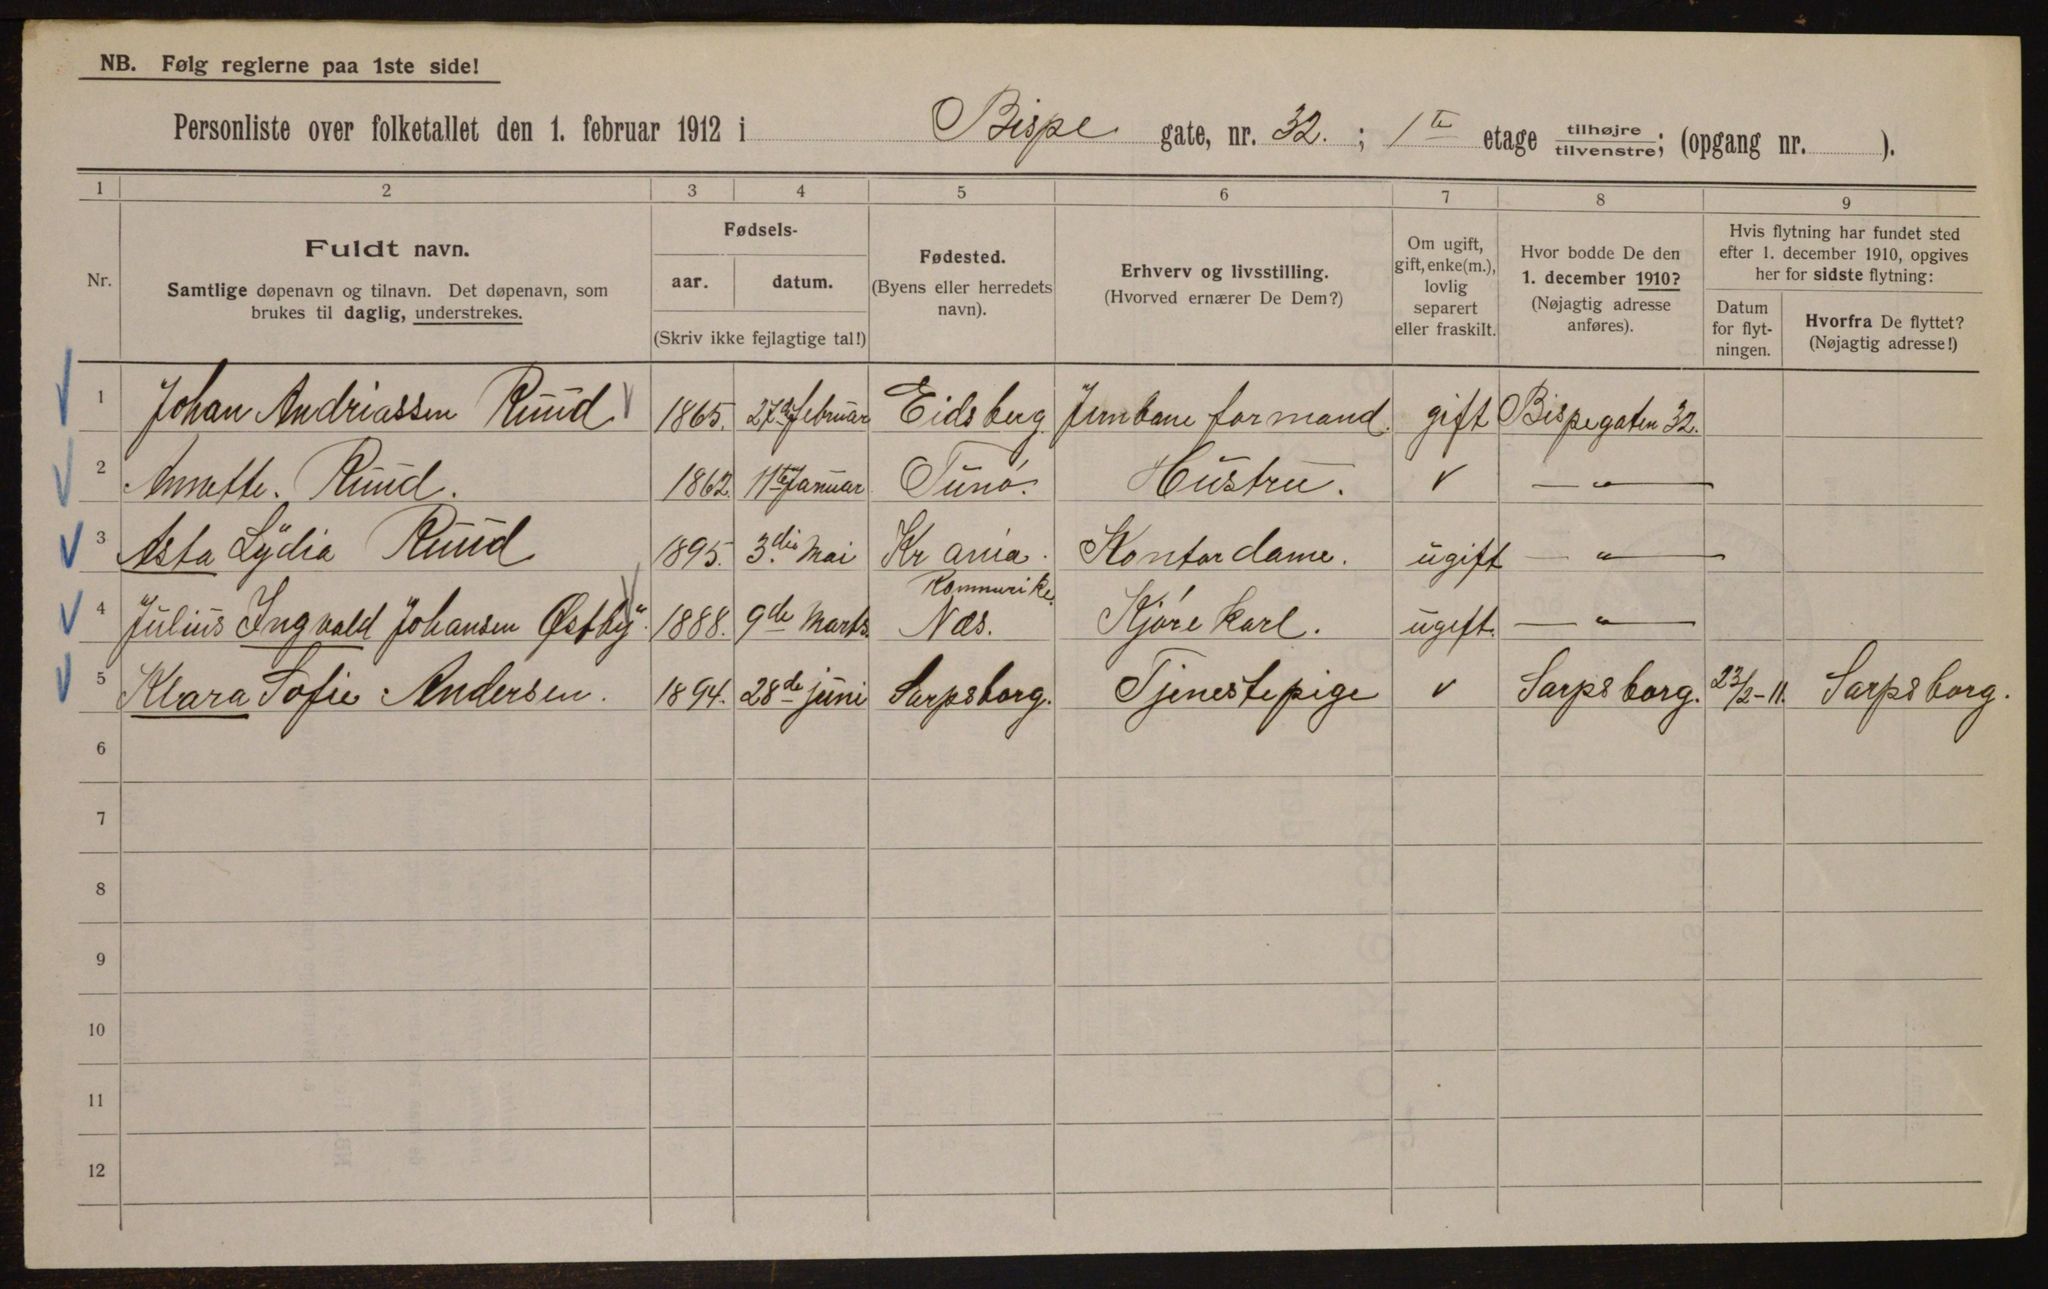 NB. Følg reglerne paa 1ste side!
Personliste over folketallet den 1. februar 1912 i Bispe gate, nr. 32. ; 1te etage tilhøjre tilvenstre; (opgang nr. ).
1 2 3 4 5 6 7 8 9
Nr.
Fuldt navn.
Samtlige døpenavn og tilnavn. Det døpenavn, som
brukes til daglig, understrekes.
Fødsels-
aar. datum.
(Skriv ikke fejlagtige tal!)
Fødested.
(Byens eller herredets
navn).
Erhverv og livsstilling.
(Hvorved ernærer De Dem?)
Om ugift,
gift, enke(m.),
lovlig
separert
eller fraskilt.
Hvor bodde De den
1. december 1910?
(Nøjagtig adresse
anføres).
Hvis flytning har fundet sted
efter 1. december 1910, opgives
her for sidste flytning:
Datum
for flyt-
ningen.
Hvorfra De flyttet?
(Nøjagtig adresse!)
1 Johan Andriassen Ruud 1865. 27de februar Eidsberg. Jernbane formand. gift Bispegaten 32.
2 Annette. Ruud. 1862. 11te Januar Tunø. Hustru. √ — „ —
3 Asta Lydia Ruud 1895. 3die Mai Kr ania. Kontordame. ugift — „ —
4 Julius Ingvald Johansen Østby. 1888. 9de Marts. Romerike. Næs. Kjørekarl. ugift. — „ —
5 Klara Sofie Andersen. 1894. 28de juni Sarpsborg. Tjenestepige √ Sarpsborg. 23/2-11. Sarpsborg.
6
7
8
9
10
11
12